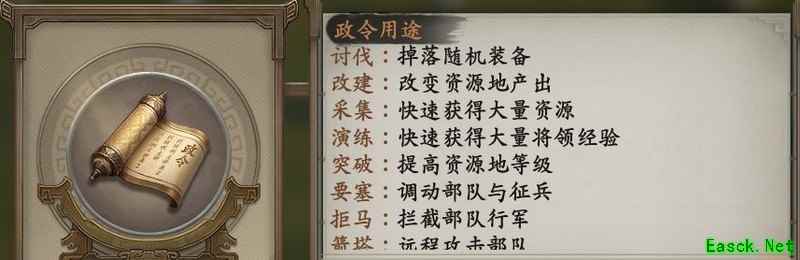 政令用途
讨伐：掉落随机装备
改建：改变资源地产出
采集：快速获得大量资源
演练：快速获得大量将领经验
突破：提高资源地等级
要塞：调动部队与征兵
拒马：拦截部队行军
箭塔：远程攻击部队
政令
Easck.Net